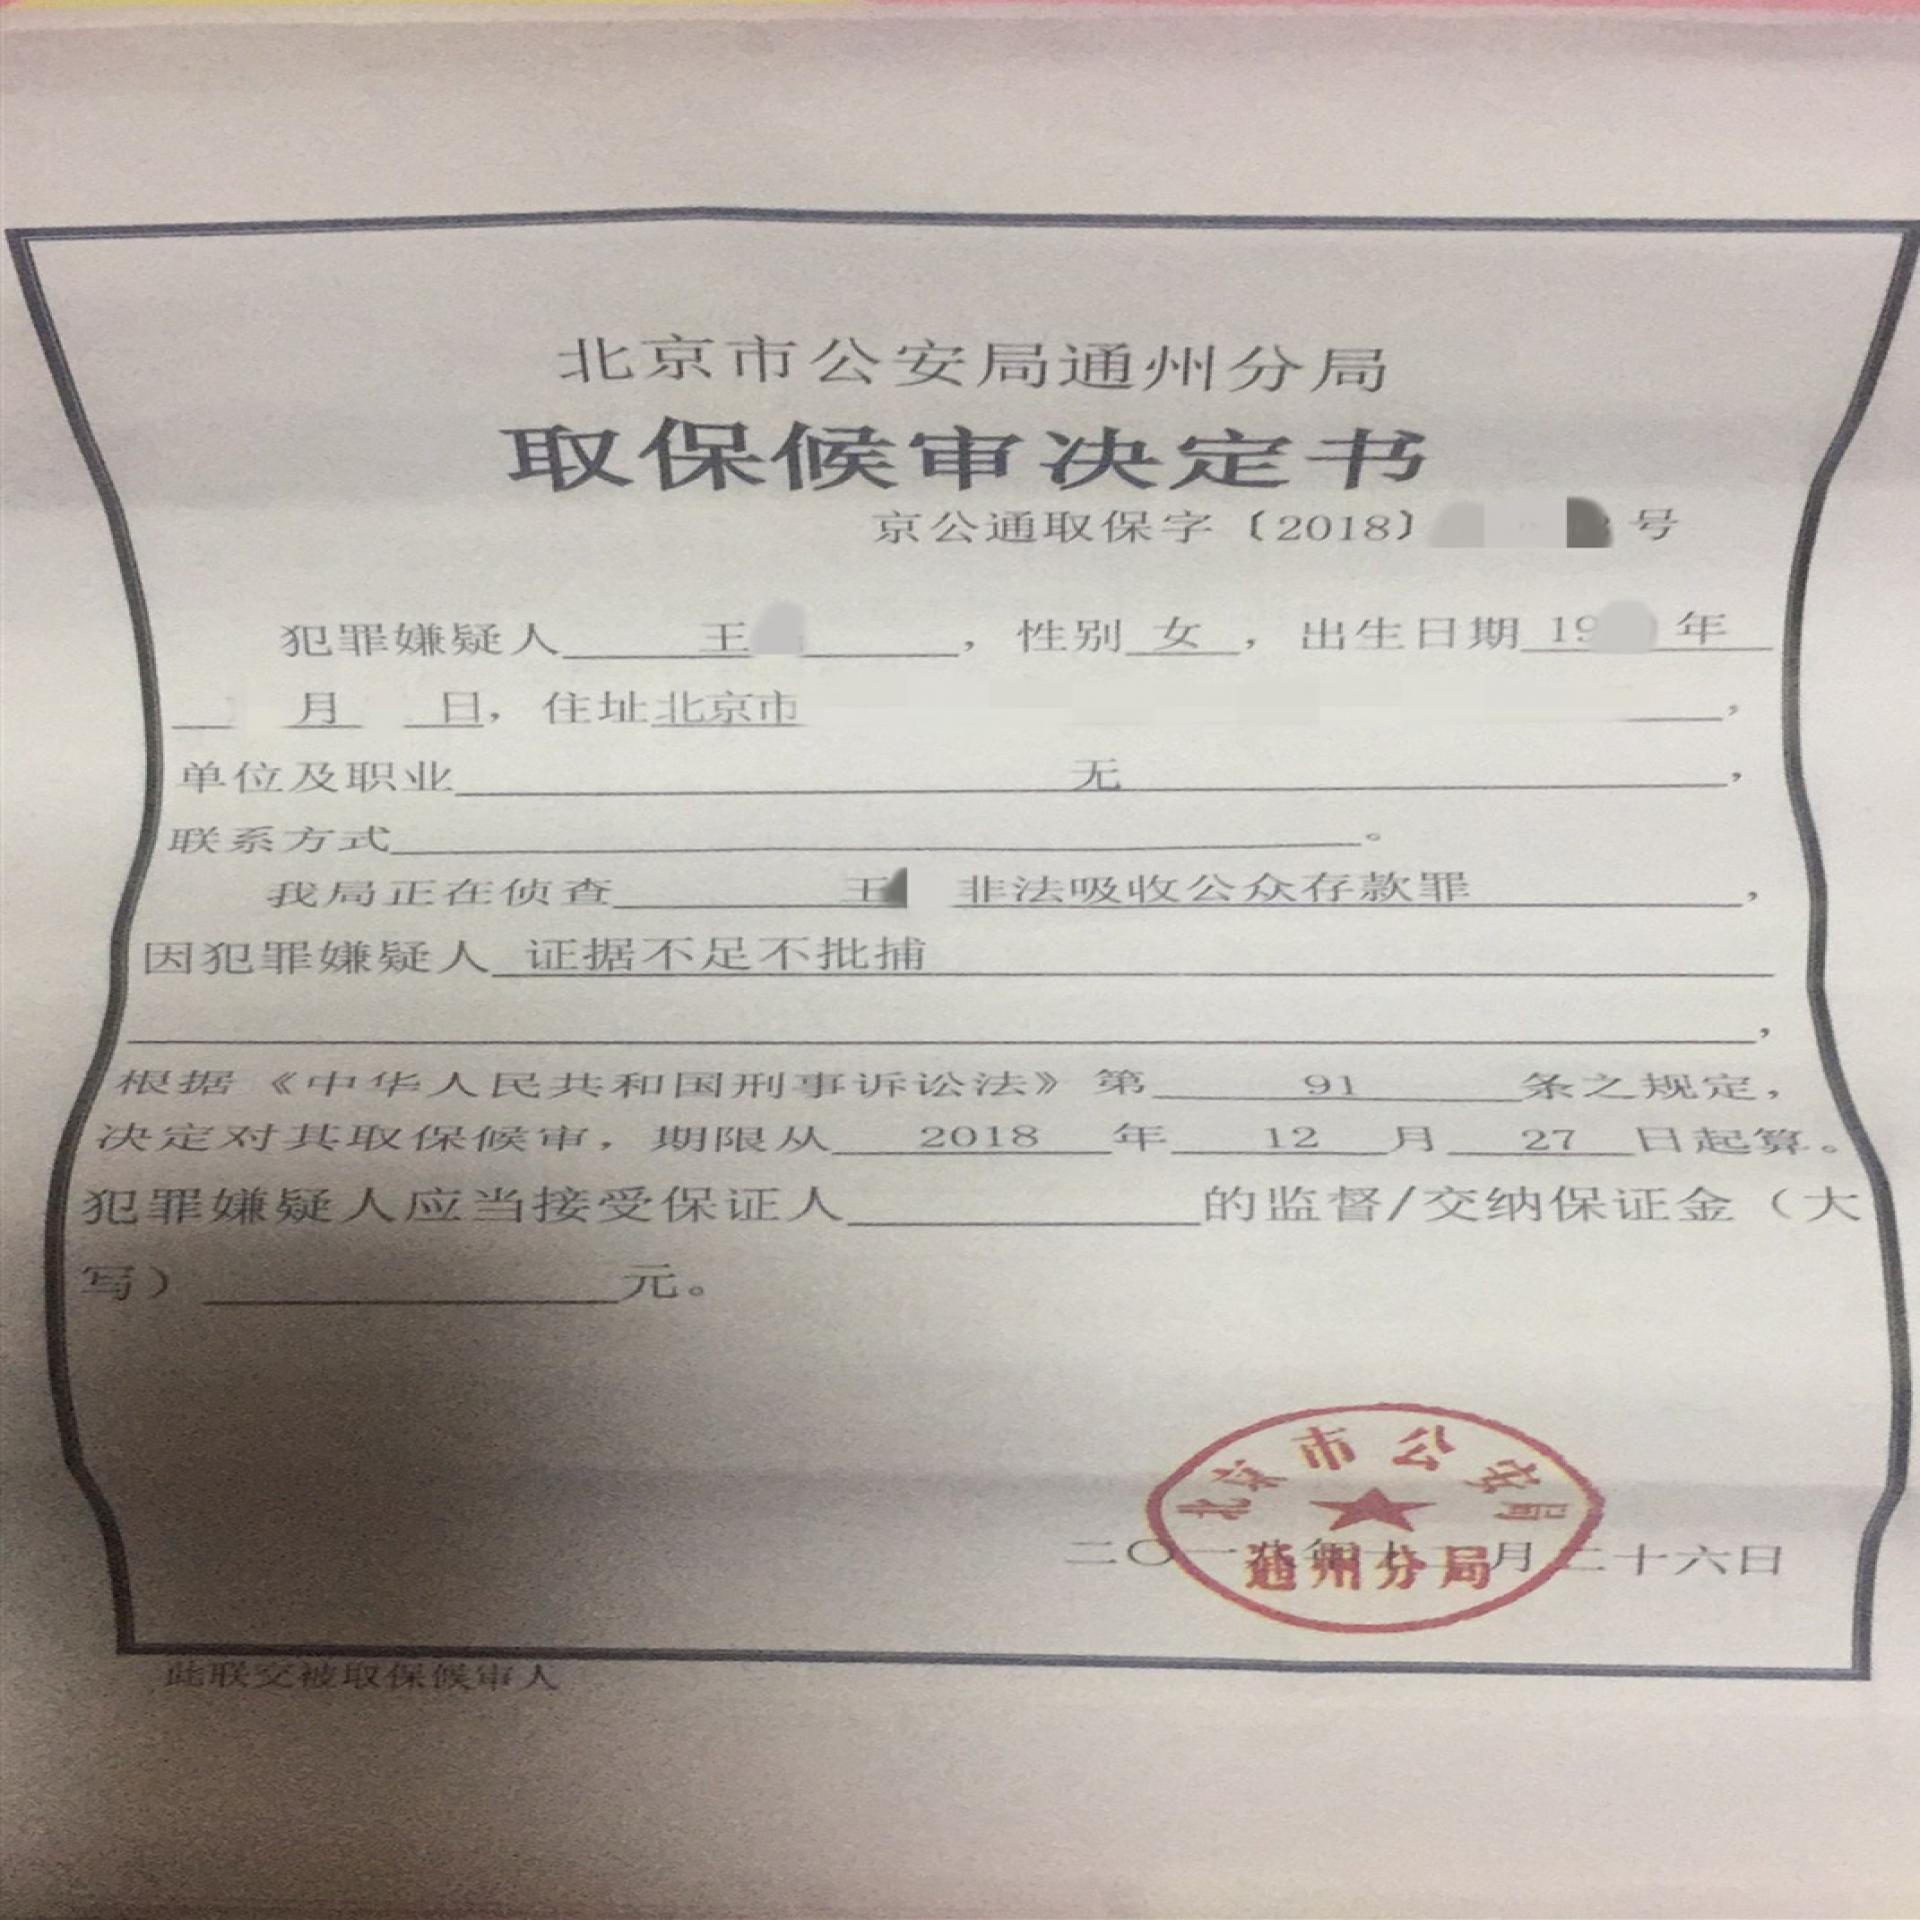 北京市公安局通州分局
取保候审决定书
京公通取保字〔2018〕 号
犯罪嫌疑人 王 ，性别 女 ，出生日期 19 年
月 日，住址北京市 ，
单位及职业 无 ，
联系方式 。
我局正在侦查 王 非法吸收公众存款罪 ，
因犯罪嫌疑人 证据不足不批捕
，
根据《中华人民共和国刑事诉讼法》第 91 条之规定，
决定对其取保候审，期限从 2018 年 12 月 27 日起算。
犯罪嫌疑人应当接受保证人 的监督/交纳保证金（大
写） 元。
北京市公安局
二〇一八年十二月二十六日
通州分局
此联交被取保候审人